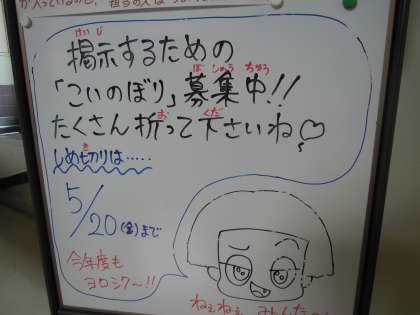 掲示するための
「こいのぼり」募集中!!
たくさん折って下さいね♡
しめ切りは‥‥‥
5/20(金)まで
今年度も
ヨロシク〜!!
ねぇねぇ みんな〜